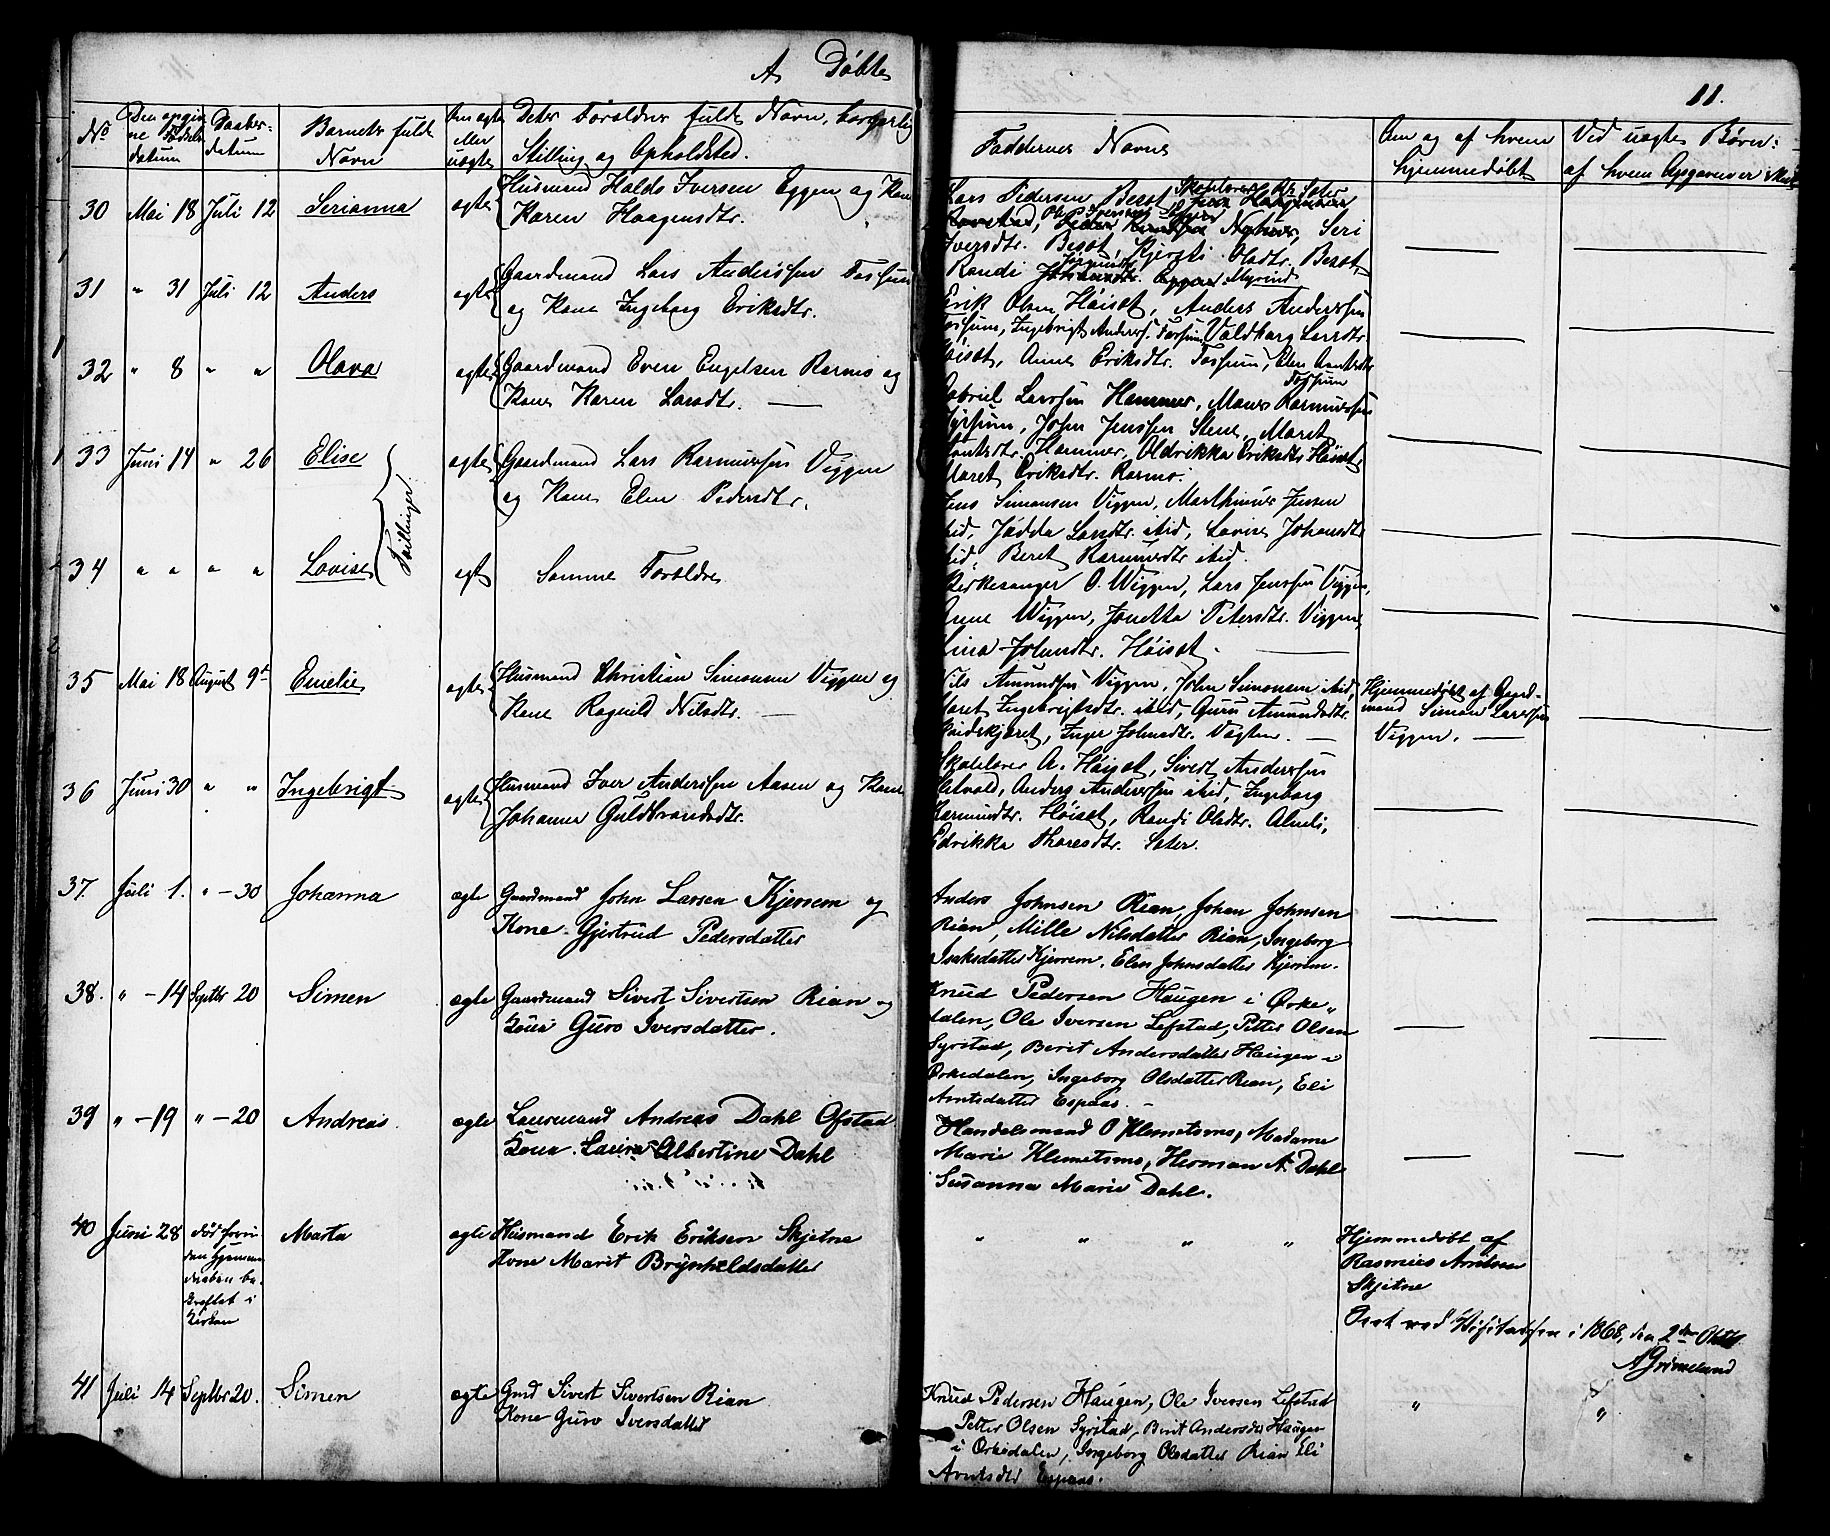 A Døbte
11.
No
Den opgiv
ne Fødsels
datum
Daabs-
datum
Barnets fulde
Navn
Om ægte
eller
uægte
Deres Forældres fulde Navn, borgerlig
Stilling og Opholdsted.
Faddernes Navne
Om og af hvem
hjemmedøbt
Ved uægte Børn:
af hvem Opgaven er
30 Mai 18 Juli 12 Serianna ægte Husmand Halds Iversen Eggen og Kone
Karen Haagensdtr.
Lars Pedersen Beret
Iversdtr. Besøt, Kjersti Olsdtr. Besøt
Randi Eggen Myrind
31 " 31 Juli 12 Anders ægte Gaardmand Lars Anderssen Fossum
og Kone Ingeborg Eriksdtr.
Erik Olsen Høisæt, Anders Anderssen
Fossum, Ingebrigt Anderss. Fossum, Valdborg Larsdtr.
Høisæt, Anne Eriksdtr. Fossum, Elen
Fossum
32 " 8 " " Olava ægte Gaardmand Even Engelsen Ramo og
Kone Karen Larsdtr. —
Gabriel Larssen Hammer, Mons Rasmussen
John Jenssen Stene, Maret
Hammer, Oldrikka Eriksdtr Høisæt
Maret Eriksdtr. Ramo.
33 Juni 14 " 26 Elise ægte Gaardmand Lars Rasmussen Viggen
og Kone Elen Pedersdtr.
Tvillinger
Jens Simonsen Viggen, Marthinus Jenssen
ibid, Jødda Larsdtr. ibid, Lovise Johansdtr
ibid, Beret Rasmusdtr ibid.
34 " " " " Lovise ægt Samme Forældre
Kirkesanger O. Wiggen, Lars Jenssen Viggen,
Anne Wiggen, Jonetta Petersdtr. Viggen,
Høisæt.
35 Mai 18 August 9de Emelie ægte Husmand Christian Simonsen Viggen og
Kone Ragnild Nilsdtr. —
Nils Amundsen Viggen, John Simonsen ibid,
Maret Ingebrigtsdtr. ibid, Guru Amundsdtr.
Inger Johnsdtr. Vagten. —
Hjemmedøbt af Gaard-
mand Simon Larssen
Viggen. —
36 Juni 30 " " Ingebrigt ægte Husmand Iver Anderssen Aasen og Kone
Johanna Guldbrandsdtr.
Skolelærer A. Høisæt, Sivert Anderssen
Anders Anderssen ibid, Ingeborg
Rasmusdtr. Høisæt, Randi Olsdtr. Almli,
Edvikka Thoresdtr. Sæter.
37. Juli 1. " - 30 Johanna ægte Gaardmand John Larsen Kjerrem og
Kone Gjertrud Pedersdatter
Anders Johnsen Rian, Johan Johnsen
Rian, Mille Nilsdatter Rian, Ingeborg
Isaksdatter Kjerrem. Elen Johnsdatter Kjerrem.
38. " - 14 Septbr 20 Simen ægte Gaardmand Sivert Sivertsen Rian og
Kone Guro Iversdatter.
Knud Pedersen Haugen i Orke-
dalen, Ole Iversen Lefstad, Petter Olsen
Syrstad, Berit Andersdatter Haugen i
Orkedalen, Ingeborg Olsdatter Rian, Eli
Arntsdatter Espaas. -
39 " - 19 " - 20 Andreas. ægte Lensmand Andreas Dahl Ofstad
Kone Laura Albertine Dahl
Handelsmand O Klemetsmo, Madame
Marie Klemetsmo, Herman A. Dahl
Susanna Marie Dahl.
40 Juni 28 død foru
den hjemme
daaben be-
kræftet i
Kirken
Marta ægte Husmand Erik Eriksen Skjetne
Kone Marit Brynhildsdatter
" " " "
Hjemmedøbt af
Rasmus Arntsen
Skjetne
Seet ved Visitatsen i 1868, den 2den Oktbr.
A Grimelund
41 Juli 14 Septbr 20. Simen ægte Gmd Sivert Sivertsen Rian
Kone Guro Iversdatter
Knud Pedersen Haugen, Ole Iversen Lefstad
Petter Olsen Syrstad, Berit Andersdtr Haugen
i Orkedalen, Ingeborg Olsdatter Rian Eli
Arntsdtr Espaas.
" "